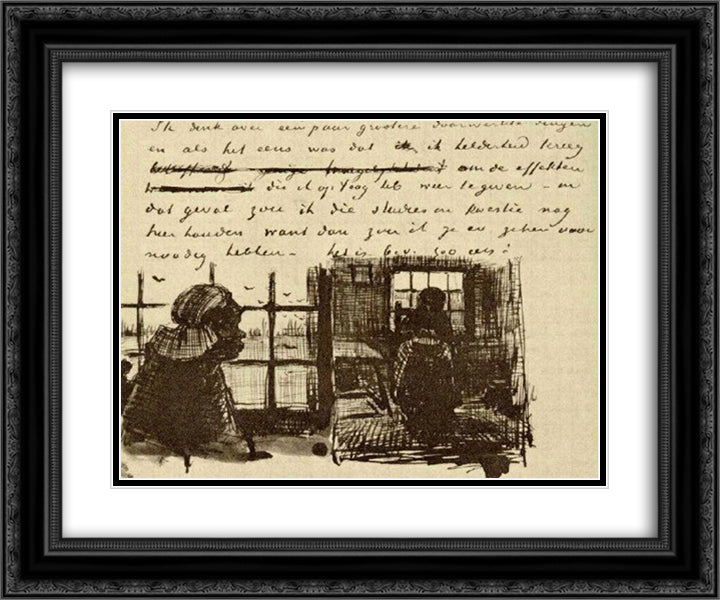 Ik denk over een paar grootere doorwerkte dingen
en als het eens was dat ik helderheid kreeg
om de effekten
die ik op 't oog heb weer te geven - in
dat geval zou ik die studies in kwestie nog
hier houden want dan zou ik ze er zeker voor
noodig hebben - het is b.v. zoo iets: